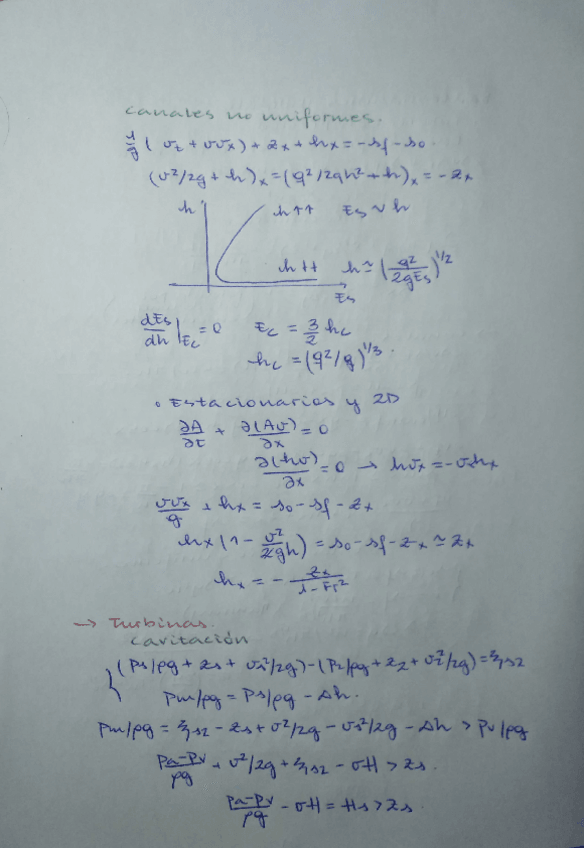 canales no uniformes.
1/g (v_t + vv_x) + z_x + h_x = -sf - so.
(v²/2g + h)_x = (q²/2gh² + h)_x = -z_x
h h↑↑ Es ~ h
h↓↓ h ≃ (q²/2gEs)^1/2
Es
dEs/dh |_Ec = 0 Ec = 3/2 hc
hc = (q²/g)^1/3.
• Estacionarios y 2D
∂A/∂t + ∂(Av)/∂x = 0
∂(hv)/∂x = 0 → hv_x = -vh_x
vv_x/g + h_x = so - sf - z_x
h_x (1 - v²/2gh) = so - sf - z_x ≃ z_x
h_x = - z_x/1-Fr²
→ Turbinas.
cavitación
(Ps/ρg + zs + vs²/2g) - (P2/ρg + z2 + v2²/2g) = ξs2
Pm/ρg = Ps/ρg - Δh.
Pm/ρg = ξs2 - zs + v²/2g - vs²/2g - Δh > Pv/ρg
Pa-Pv/ρg + v²/2g + ξs2 - σH > zs.
Pa-Pv/ρg - σH = Hs > zs.